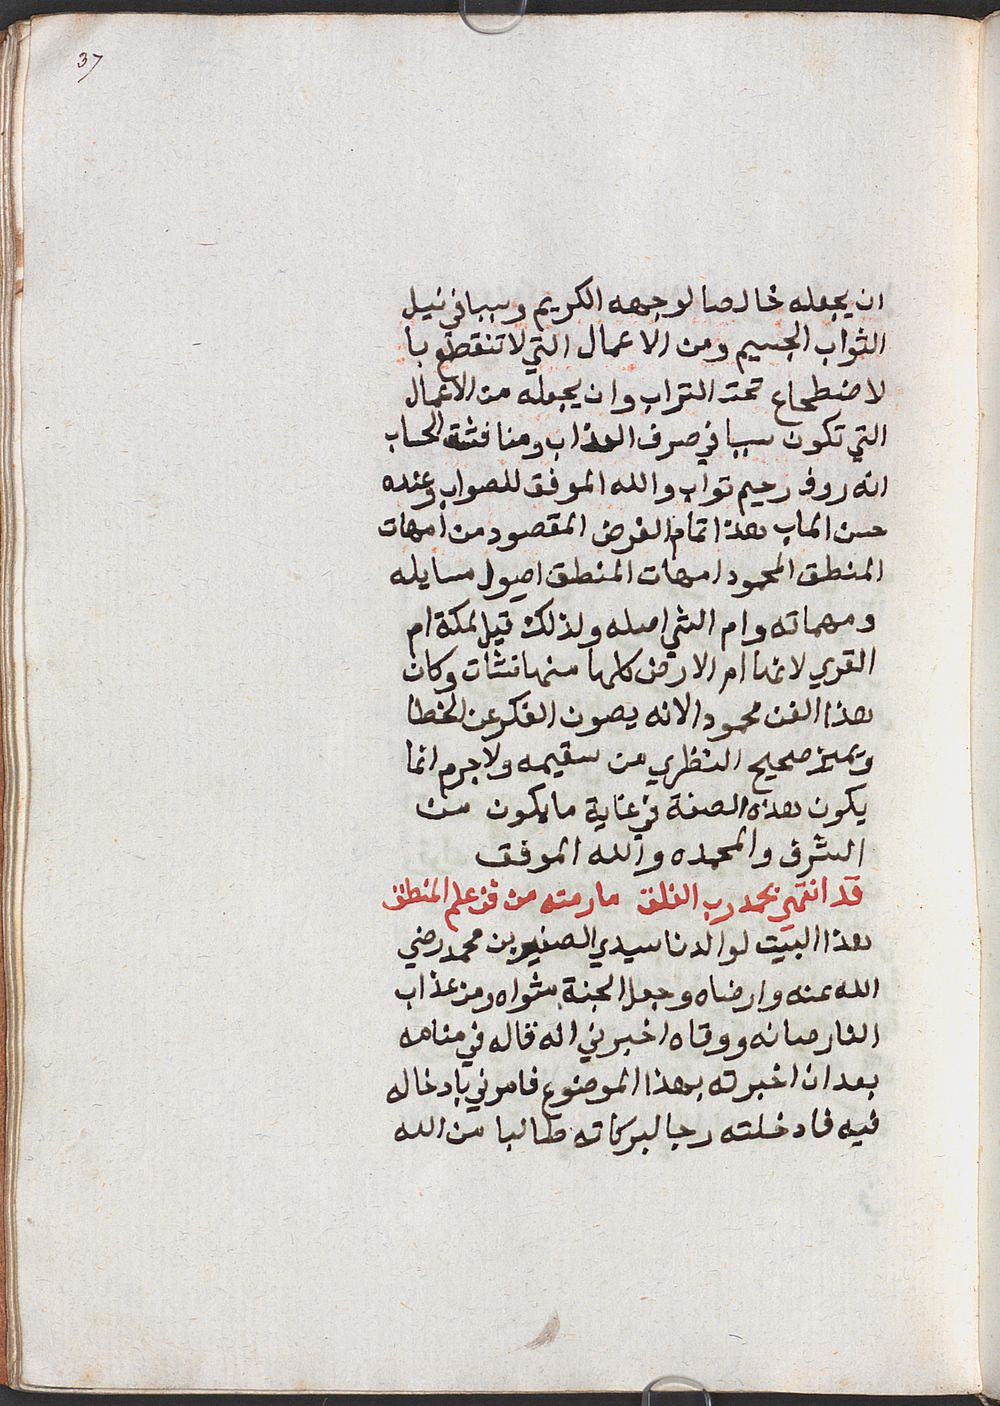 37
ان يجعله خالصا لوجهه الكريم وسببا في نيل
الثواب الجسيم ومن الاعمال التي لا تنقطع با
لاضطجاع تحت التراب وان يجعله من الاعمال
التي تكون سببا في صرف العذاب ومناقشة الحساب
انه روف رحيم تواب والله الموفق للصواب وعنده
حسن الماب هذا تمام الغرض المقصود من امهات
المنطق المحمود امهات المنطق اصول مسايله
ومهماته وام الشي اصله ولذلك قيل لمكة ام
القري لانها ام الارض كلها منها نشات وكان
هذا الفن محمودا لانه يصون الفكر عن الخطا
ويميز صحيح النظري من سقيمه ولا جرم انما
يكون هذه الصفة في غاية ما يكون من
الشرف والمحمده والله الموفق
قد انتهي بحمد رب الفلق ما رمته من فن علم المنطق
هذا البيت لوالدنا سيدي الصغير بن محمد رضي
الله عنه وارضاه وجعل الجنة مثواه ومن عذاب
النار صانه ووقاه اخبرني انه قاله في منامه
بعد ان اخبرته بهذا الموضوع فامرني بادخاله
فيه فادخلته رجا لبركاته طالبا من الله